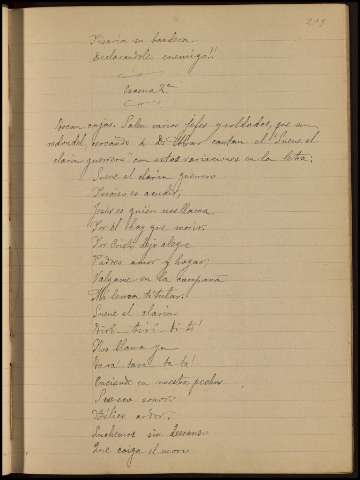 219
Pisaria su bandera
Declarandole enemigo!!
Escena 2ª
Tocan cajas. Salen varios jefes y soldados, que en
redor del, cercando á D. cantan el Suene el
clarin guerrero con estas variaciones en la letra:
Suene el clarin guerrero
Preciso es acudir,
Jesús es quien nos llama
Por él hay que morir.
Por Cristo dejo alegre
Padres amor y hogar;
Valgame en la campaña
Mi
Suene el clarin
tiri ti ti!
Nos llama ya
tara ta ta!
Enciende en nuestro pecho
Su eco sonoro
Bélico ardor;
Luchemos sin descanso
Que caiga el moro